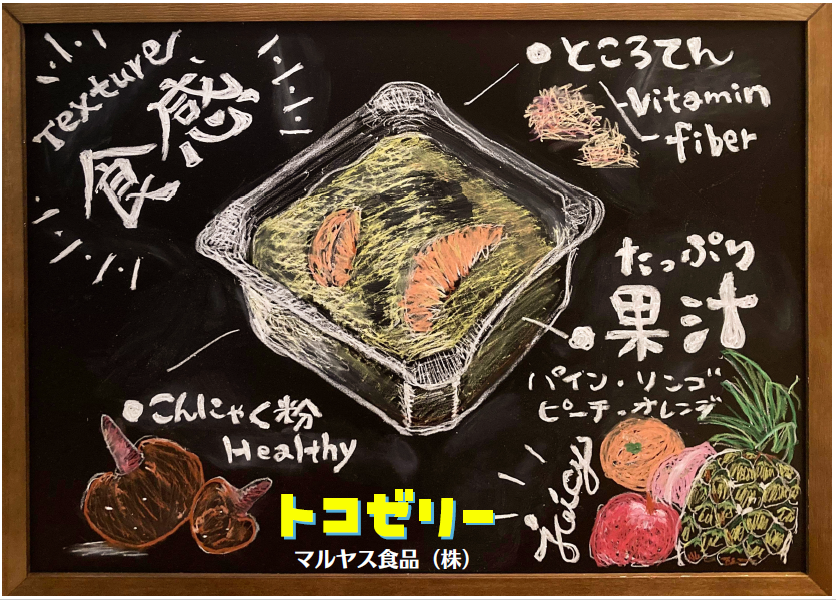 Texture
食感
●ところてん
Vitamin
fiber
たっぷり
●果汁
パイン・リンゴ
ピーチ・オレンジ
Juicy
●こんにゃく粉
Healthy
トコゼリー
マルヤス食品（株）